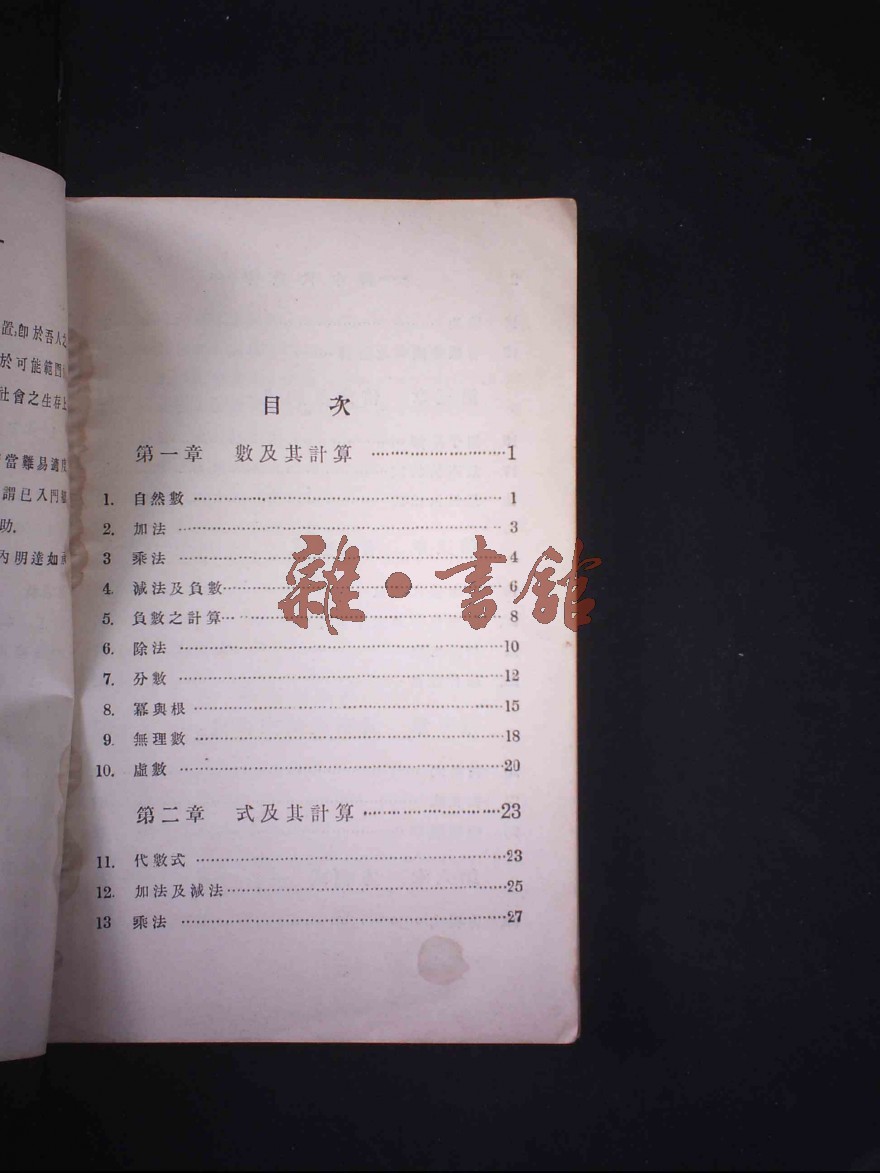 置,卽於吾人之
於可能範圍
社會之生存上
當難易適度
謂已入門
助.
內明達如
目 次
第一章 數及其計算 ……………………1
1. 自然數 ……………………1
2. 加法 ……………………3
3 乘法 ……………………4
4. 減法及負數……………………6
5. 負數之計算……………………8
6. 除法 ……………………10
7. 分數 ……………………12
8. 冪與根 ……………………15
9. 無理數 ……………………18
10. 虛數 ……………………20
第二章 式及其計算 ……………………23
11. 代數式 ……………………23
12. 加法及減法……………………25
13 乘法 ……………………27
雜·書館